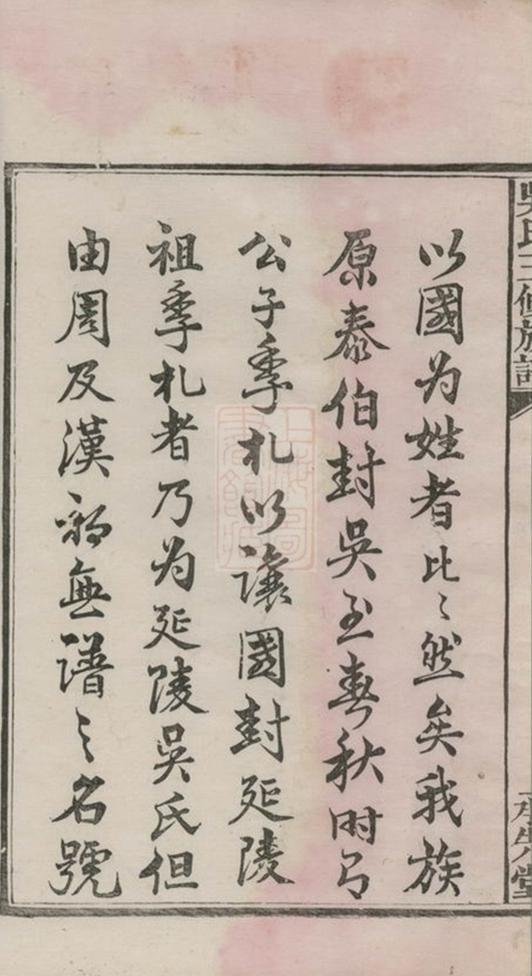 吳氏三修族譜
以國為姓者比〻然矣我族
原泰伯封吳至春秋時
公子季札以讓國封延陵
祖季札者乃為延陵吳氏但
由周及漢初無譜〻名號